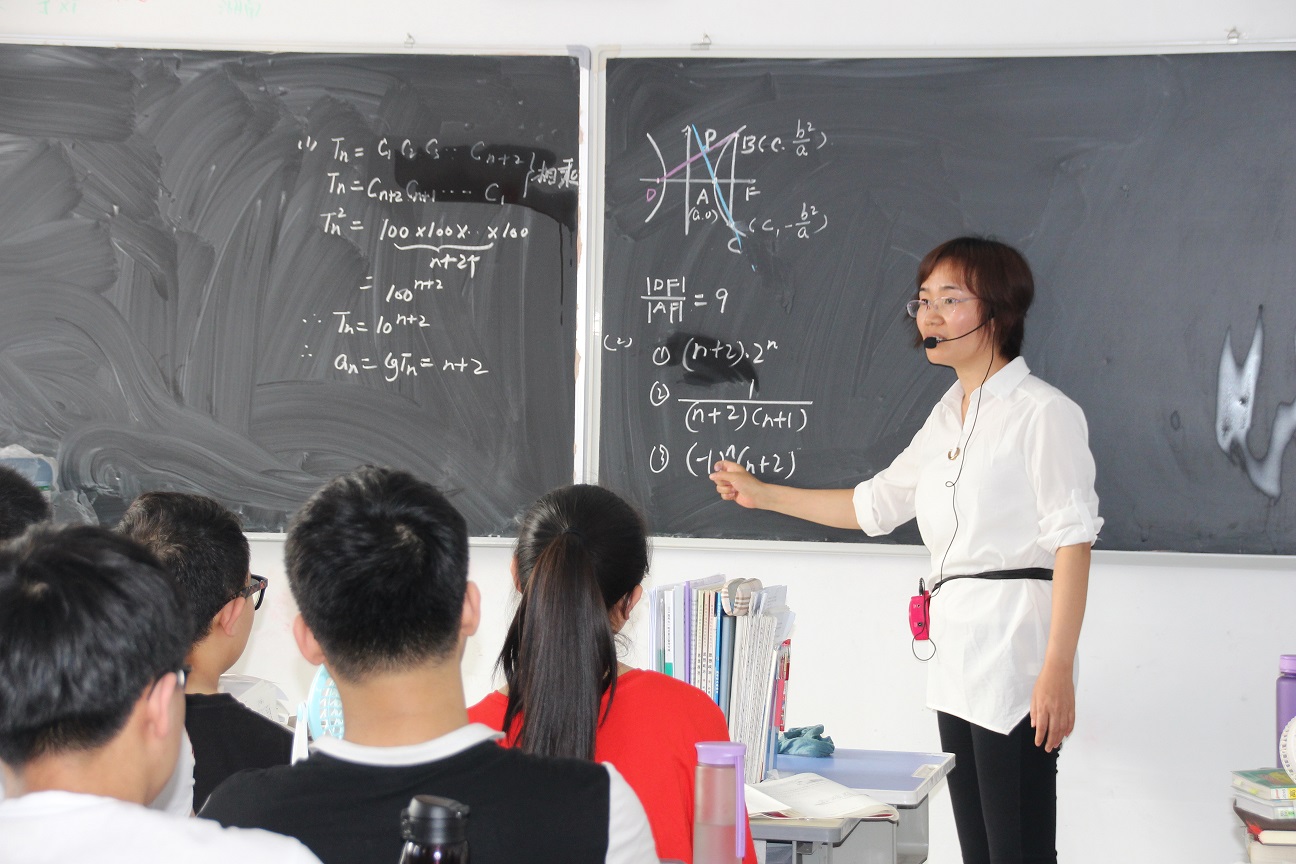 (1) Tn = C1 C2 C3 ... Cn+2 } 相乘
Tn = Cn+2 Cn+1 ... C1
Tn² = 100×100×...×100
n+2个
= 100^(n+2)
∴ Tn = 10^(n+2)
∴ an = lgTn = n+2
P B(c, b²/a)
D A F
(a,0)
C (c, -b²/a)
|DF|/|AF| = 9
(2) ① (n+2)·2ⁿ
② 1/((n+2)(n+1))
③ (-1)ⁿ(n+2)